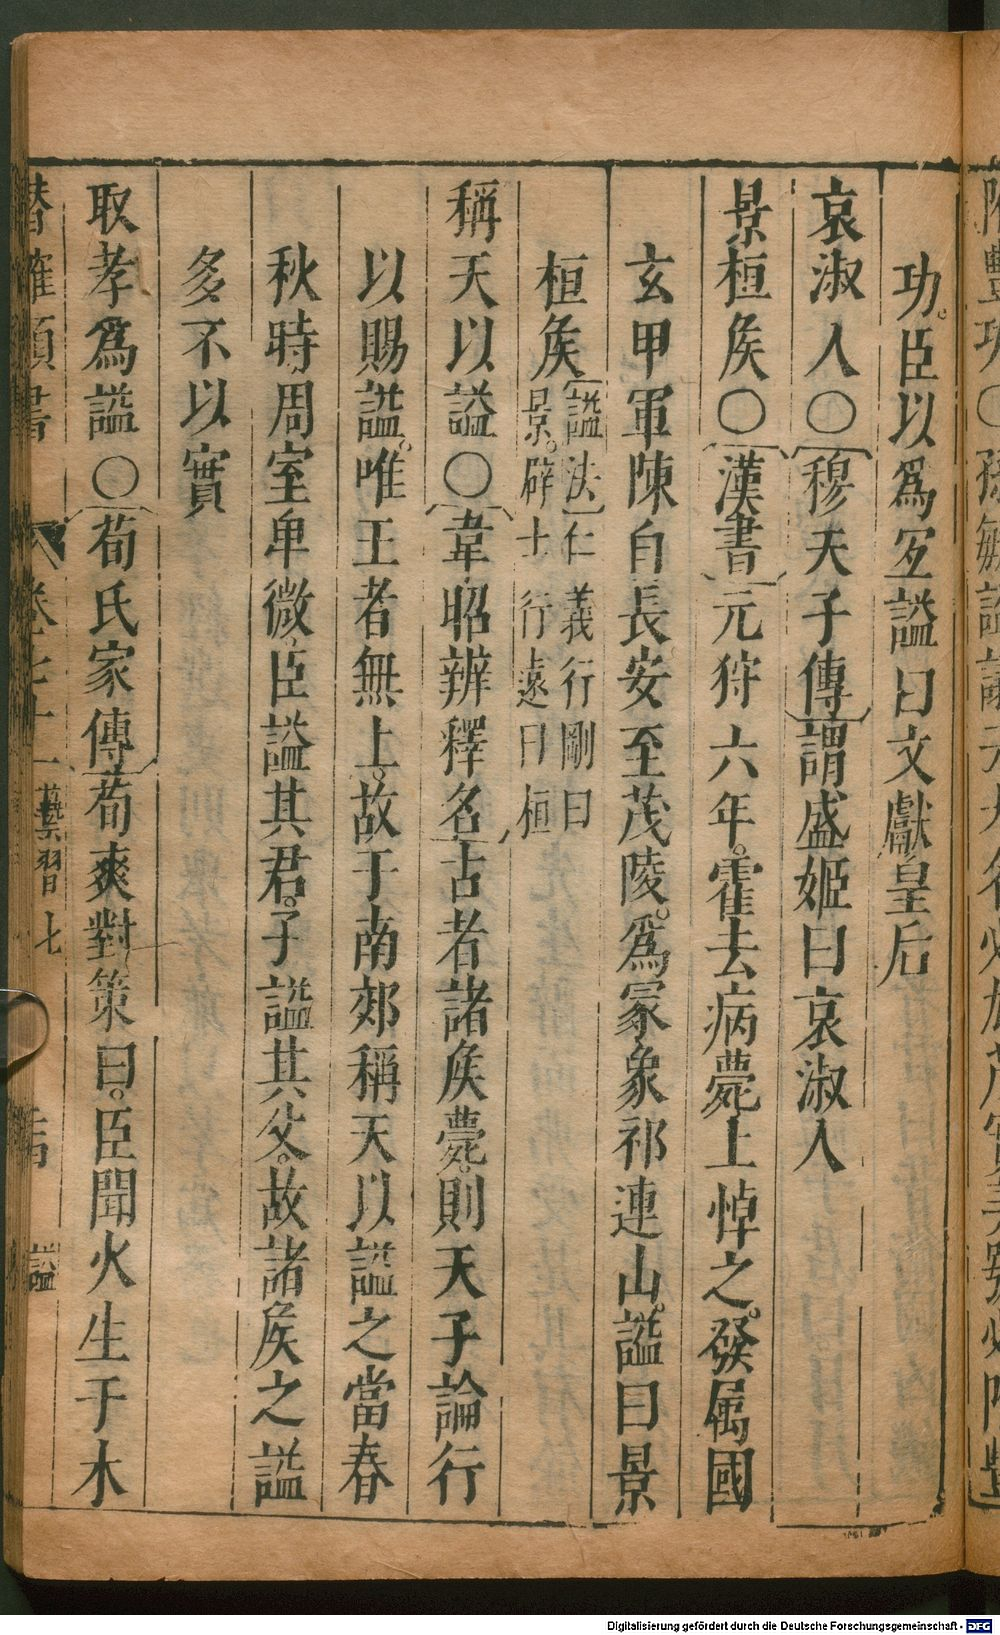 功。臣以爲宜謚曰文獻皇后
哀淑人〇穆天子傳謂盛姬曰哀淑人
景桓矦〇漢書元狩六年。霍去病薨上悼之。發属國
玄甲軍陳自長安至茂陵。爲冢象祁連山。謚曰景
桓矦謚法仁義行剛曰景。辟土行遠曰桓
稱天以謚〇韋昭辨釋名古者諸矦薨。則天子論行
以賜謚。唯王者無上。故于南郊稱天以謚之當春
秋時周室卑微臣謚其君。子謚其父。故諸矦之謚
多不以實
取孝爲謚〇荀氏家傳荀爽對策曰。臣聞火生于木
潛確類書 卷七十一 藝習七 謚
Digitalisierung gefördert durch die Deutsche Forschungsgemeinschaft - DFG